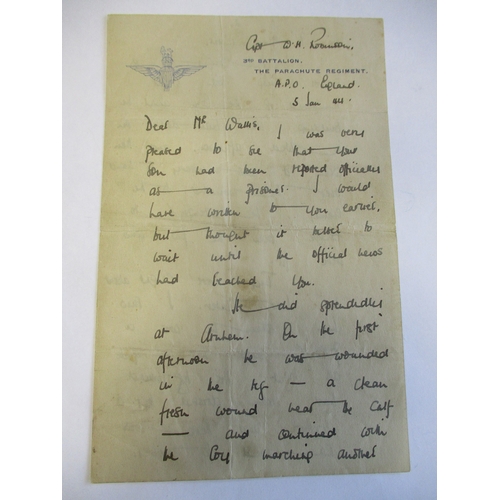 Capt W.H. Robinson,
3RD BATTALION,
THE PARACHUTE REGIMENT.
A.P.O. England.
5 Jan 44.
Dear Mr Wallis, I was very
pleased to see that your
Son had been reported officially
as a prisoner. I would
have written to you earlier,
but thought it better to
wait until the official news
had reached you.
He did splendidly
at Arnhem. On the first
afternoon he was wounded
in the leg — a clean
fresh wound near the calf
— and continued with
the Coy marching another